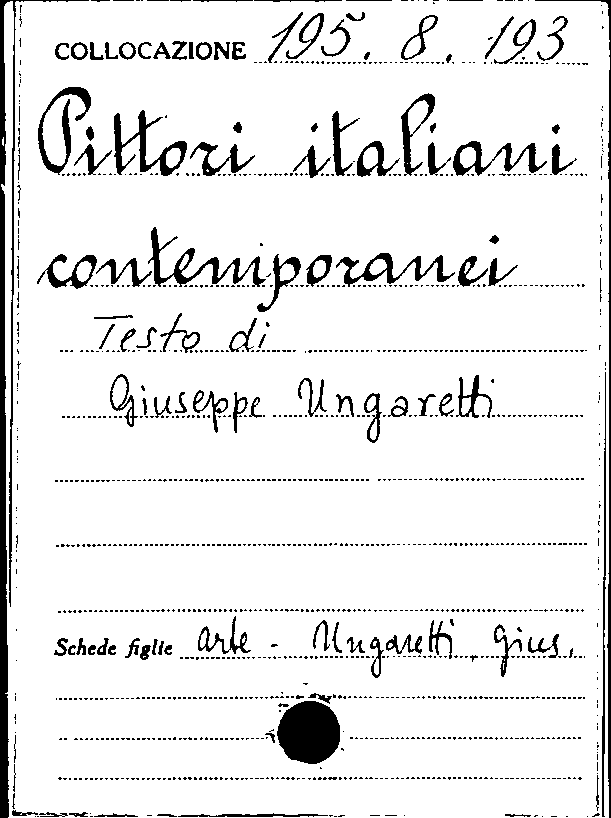 COLLOCAZIONE 195. 8. 193
Pittori italiani
contemporanei
Testo di
Giuseppe Ungaretti
Schede figlie arte - Ungaretti, Gius.